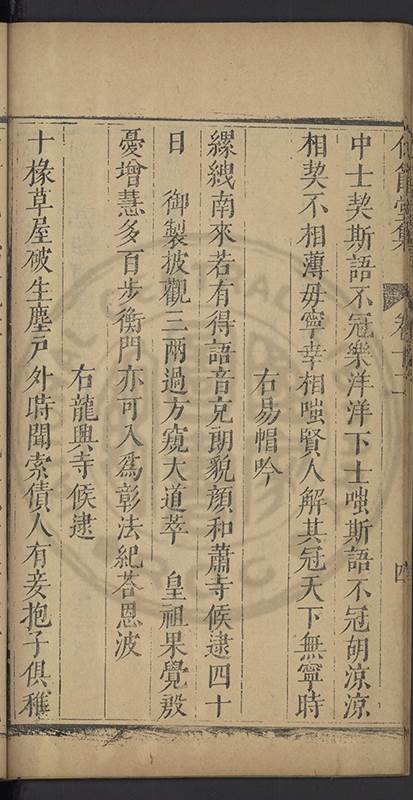 仰節堂集 卷十二 四
中士契斯語不冠樂洋洋下士嗤斯語不冠胡涼涼
相契不相薄毋寧幸相嗤賢人解其冠天下無寧時
右易帽吟
縲絏南來若有得語音克朗貌顏和蕭寺候逮四十
日 御製披觀三兩過方窺大道萃 皇祖果覺殷
憂增慧多百步衡門亦可入為彰法紀荅恩波
右龍興寺候逮
十椽草屋破生塵戸外時聞索債人有妾抱子俱穉